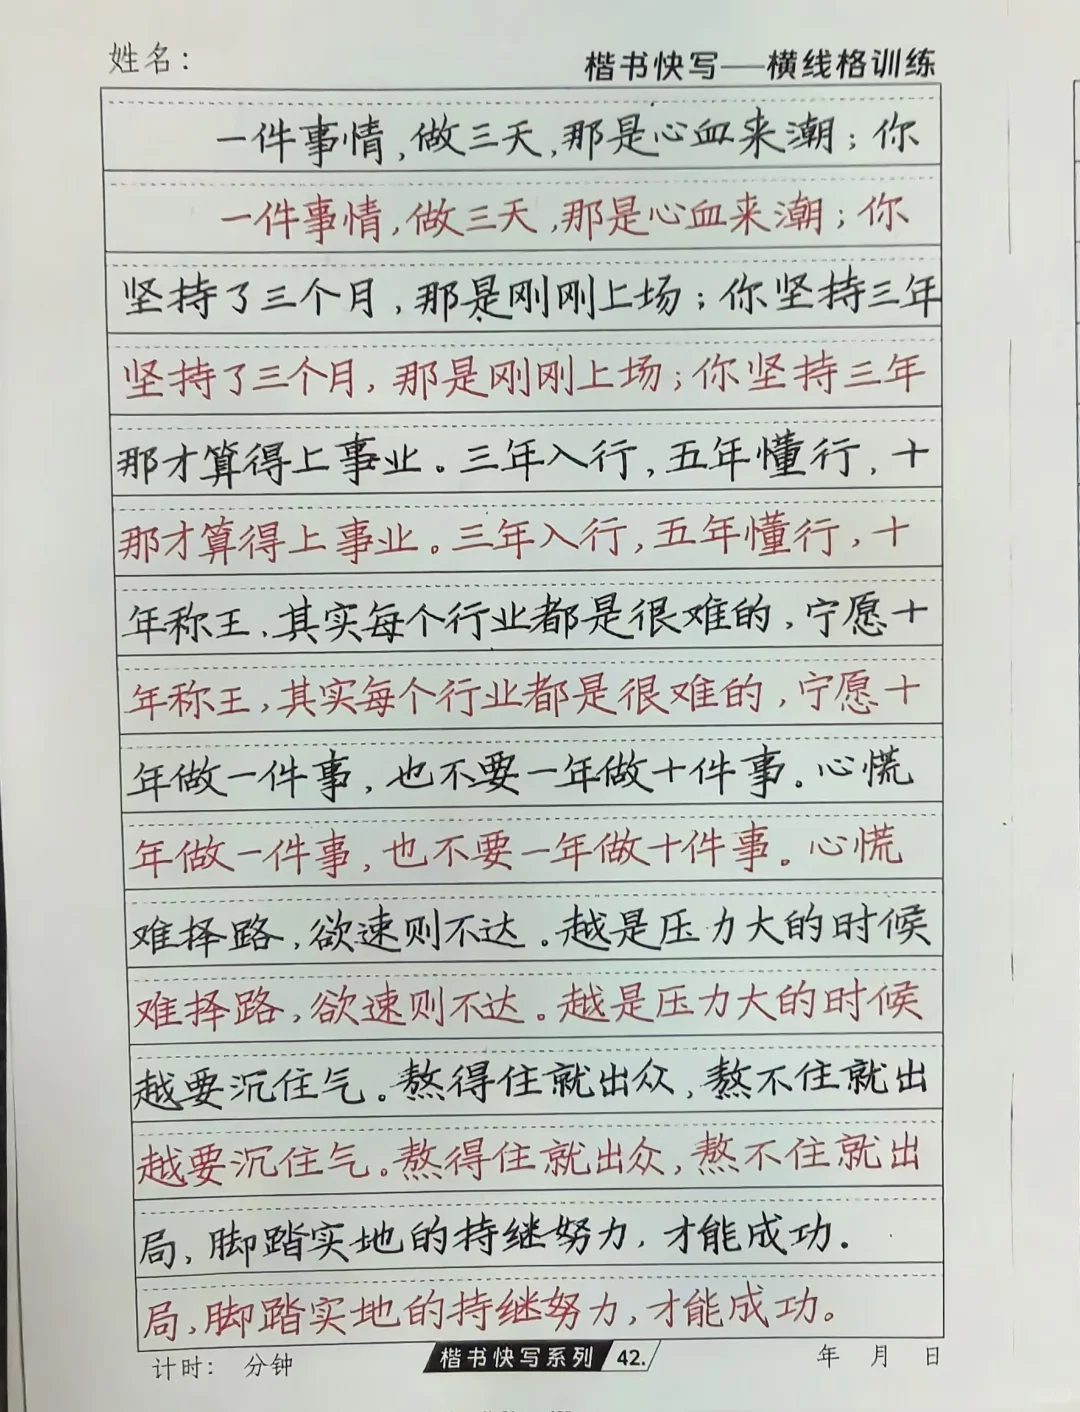 姓名：
楷书快写——横线格训练
一件事情，做三天，那是心血来潮；你
一件事情，做三天，那是心血来潮；你
坚持了三个月，那是刚刚上场；你坚持三年
坚持了三个月，那是刚刚上场；你坚持三年
那才算得上事业。三年入行，五年懂行，十
那才算得上事业。三年入行，五年懂行，十
年称王，其实每个行业都是很难的，宁愿十
年称王，其实每个行业都是很难的，宁愿十
年做一件事，也不要一年做十件事。心慌
年做一件事，也不要一年做十件事。心慌
难择路，欲速则不达。越是压力大的时候
难择路，欲速则不达。越是压力大的时候
越要沉住气。熬得住就出众，熬不住就出
越要沉住气。熬得住就出众，熬不住就出
局，脚踏实地的持继努力，才能成功.
局，脚踏实地的持继努力，才能成功。
计时： 分钟
楷书快写系列 42.
年 月 日